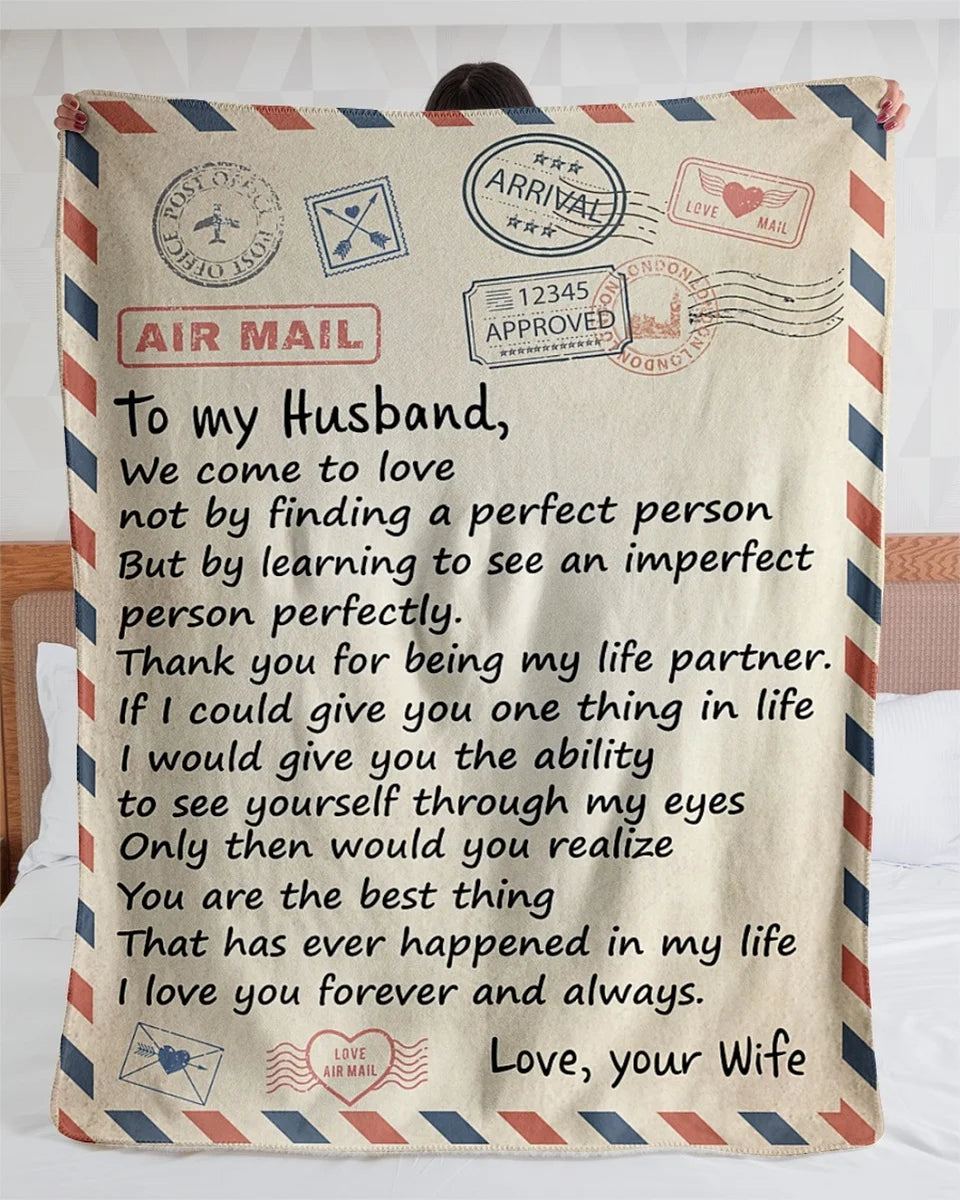 POST OFFICE POST OFFICE
ARRIVAL
LOVE MAIL
12345
APPROVED
LONDON LONDON LONDON
AIR MAIL
To my Husband,
We come to love
not by finding a perfect person
But by learning to see an imperfect
person perfectly.
Thank you for being my life partner.
If I could give you one thing in life
I would give you the ability
to see yourself through my eyes
Only then would you realize
You are the best thing
That has ever happened in my life
I love you forever and always.
LOVE
AIR MAIL
Love, your Wife